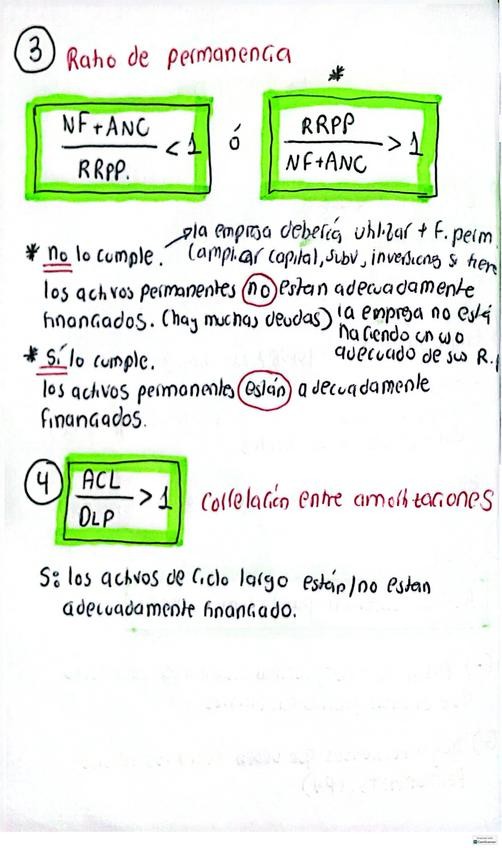 3 Ratio de permanencia
*
NF+ANC / RRPP. < 1 ó RRPP / NF+ANC > 1
* No lo cumple. → la empresa debería utilizar + F. perm
(ampliar capital, subv, inversiones si tiene
los activos permanentes no estan adecuadamente
financiados. (hay muchas deudas) la empresa no está
haciendo un uso
adecuado de sus R.
* Sí lo cumple.
los activos permanentes están adecuadamente
financiados.
4 ACL / DLP > 1 Correlación entre amortitaciones
S: los activos de ciclo largo están/no estan
adecuadamente financiado.